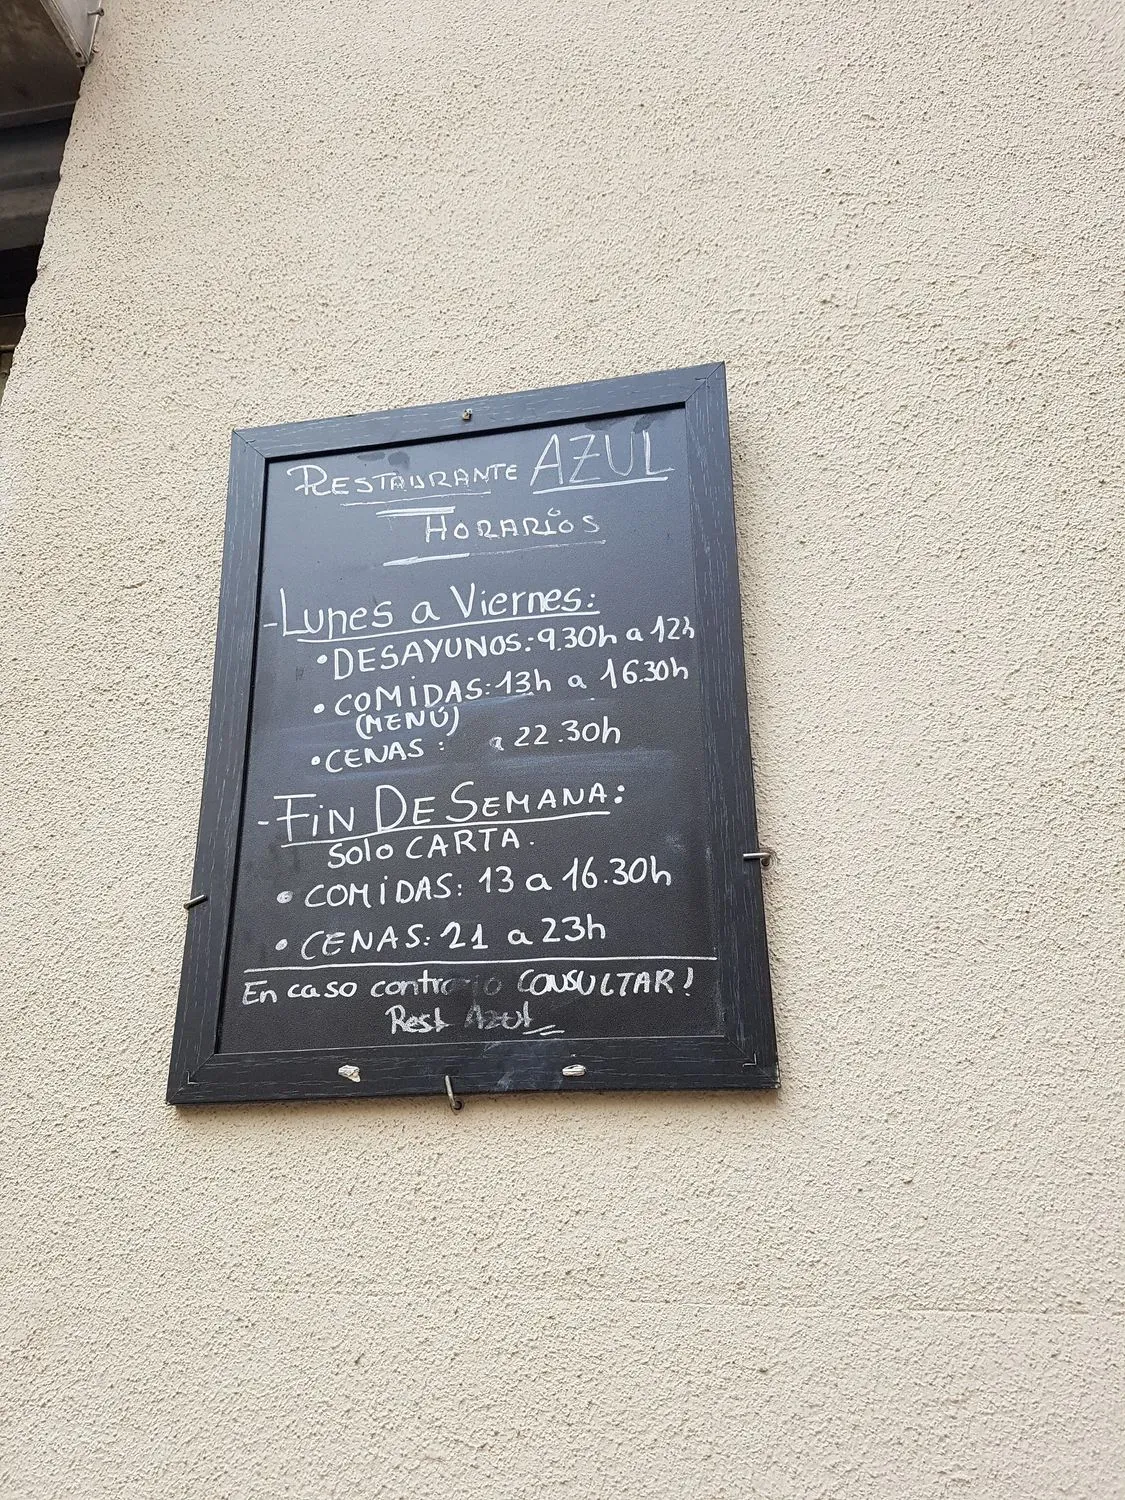 RESTAURANTE AZUL
HORARIOS
- Lunes a Viernes:
• DESAYUNOS: 9.30h a 12h
• COMIDAS: 13h a 16.30h
(MENÚ)
• CENAS: a 22.30h
- FIN DE SEMANA:
Solo CARTA.
• COMIDAS: 13 a 16.30h
• CENAS: 21 a 23h
En caso contrario CONSULTAR!
Rest Azul